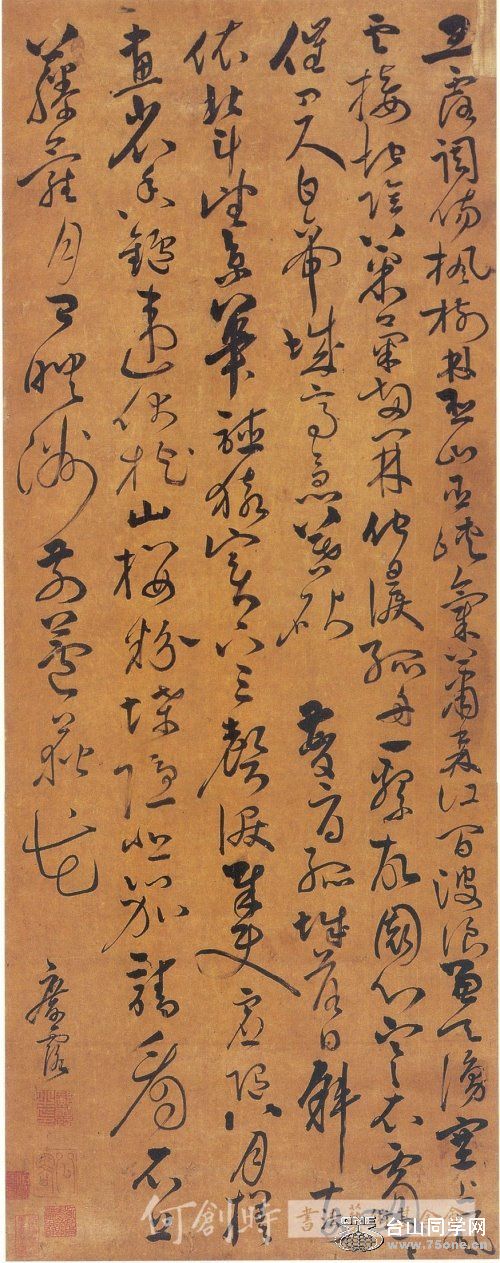 玉露調傷楓樹林巫山巫峽氣蕭森江間波浪兼天湧塞上風
雲接地陰叢菊兩開他日淚孤舟一繫故園心寒衣處處
催刀尺白帝城高急暮砧 夔府孤城落日斜每
依北斗望京華聽猿實下三聲淚奉使虛隨八月槎
畫省香鑪違伏枕山樓粉堞隱悲笳請看石上
藤蘿月已映洲前蘆荻花
鄺露
何創時書法藝術基金會
台山同学网